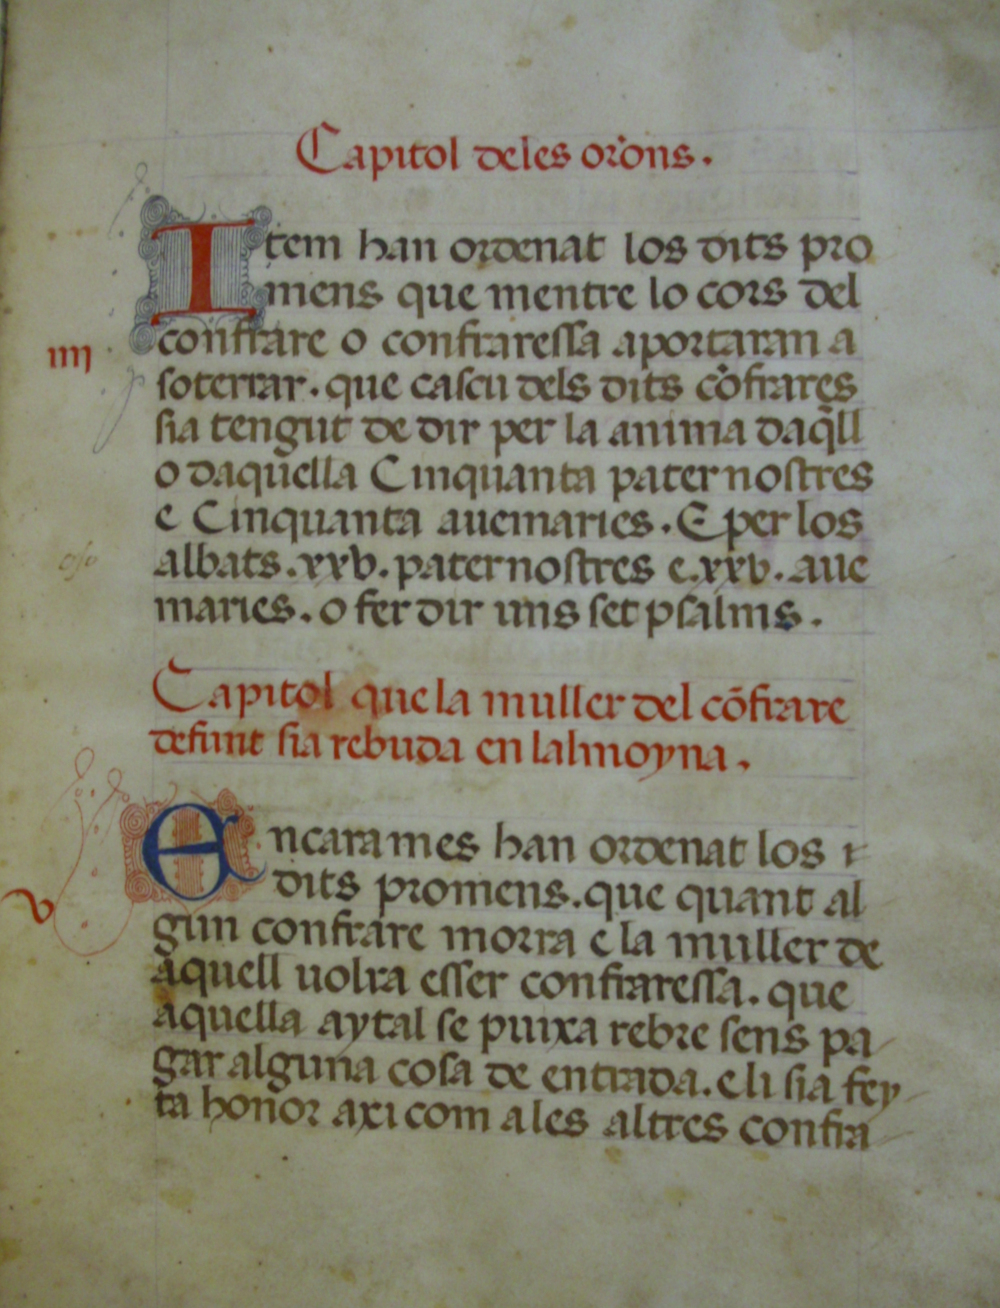 Capitol deles oŕons.
Item han ordenat los dits pro
mens que mentre lo cors del
confrare o confraressa aportaran a
iiij
soterrar. que cascu dels dits cõfrares
sia tengut de dir per la anima daq̃ll
o daquella Cinquanta paternostres
e Cinquanta auemaries. E per los
albats. xxv. paternostres e. xxv. aue
maries. o fer dir uns set psalms.
Capitol que la muller del cõfrare
defunt sia rebuda en lalmoyna.
Encarames han ordenat los
dits promens. que quant al
v
gun confrare morra e la muller de
aquell uolra esser confraressa. que
aquella aytal se puixa rebre sens pa
gar alguna cosa de entrada. e li sia fey
ta honor axi com ales altres confra